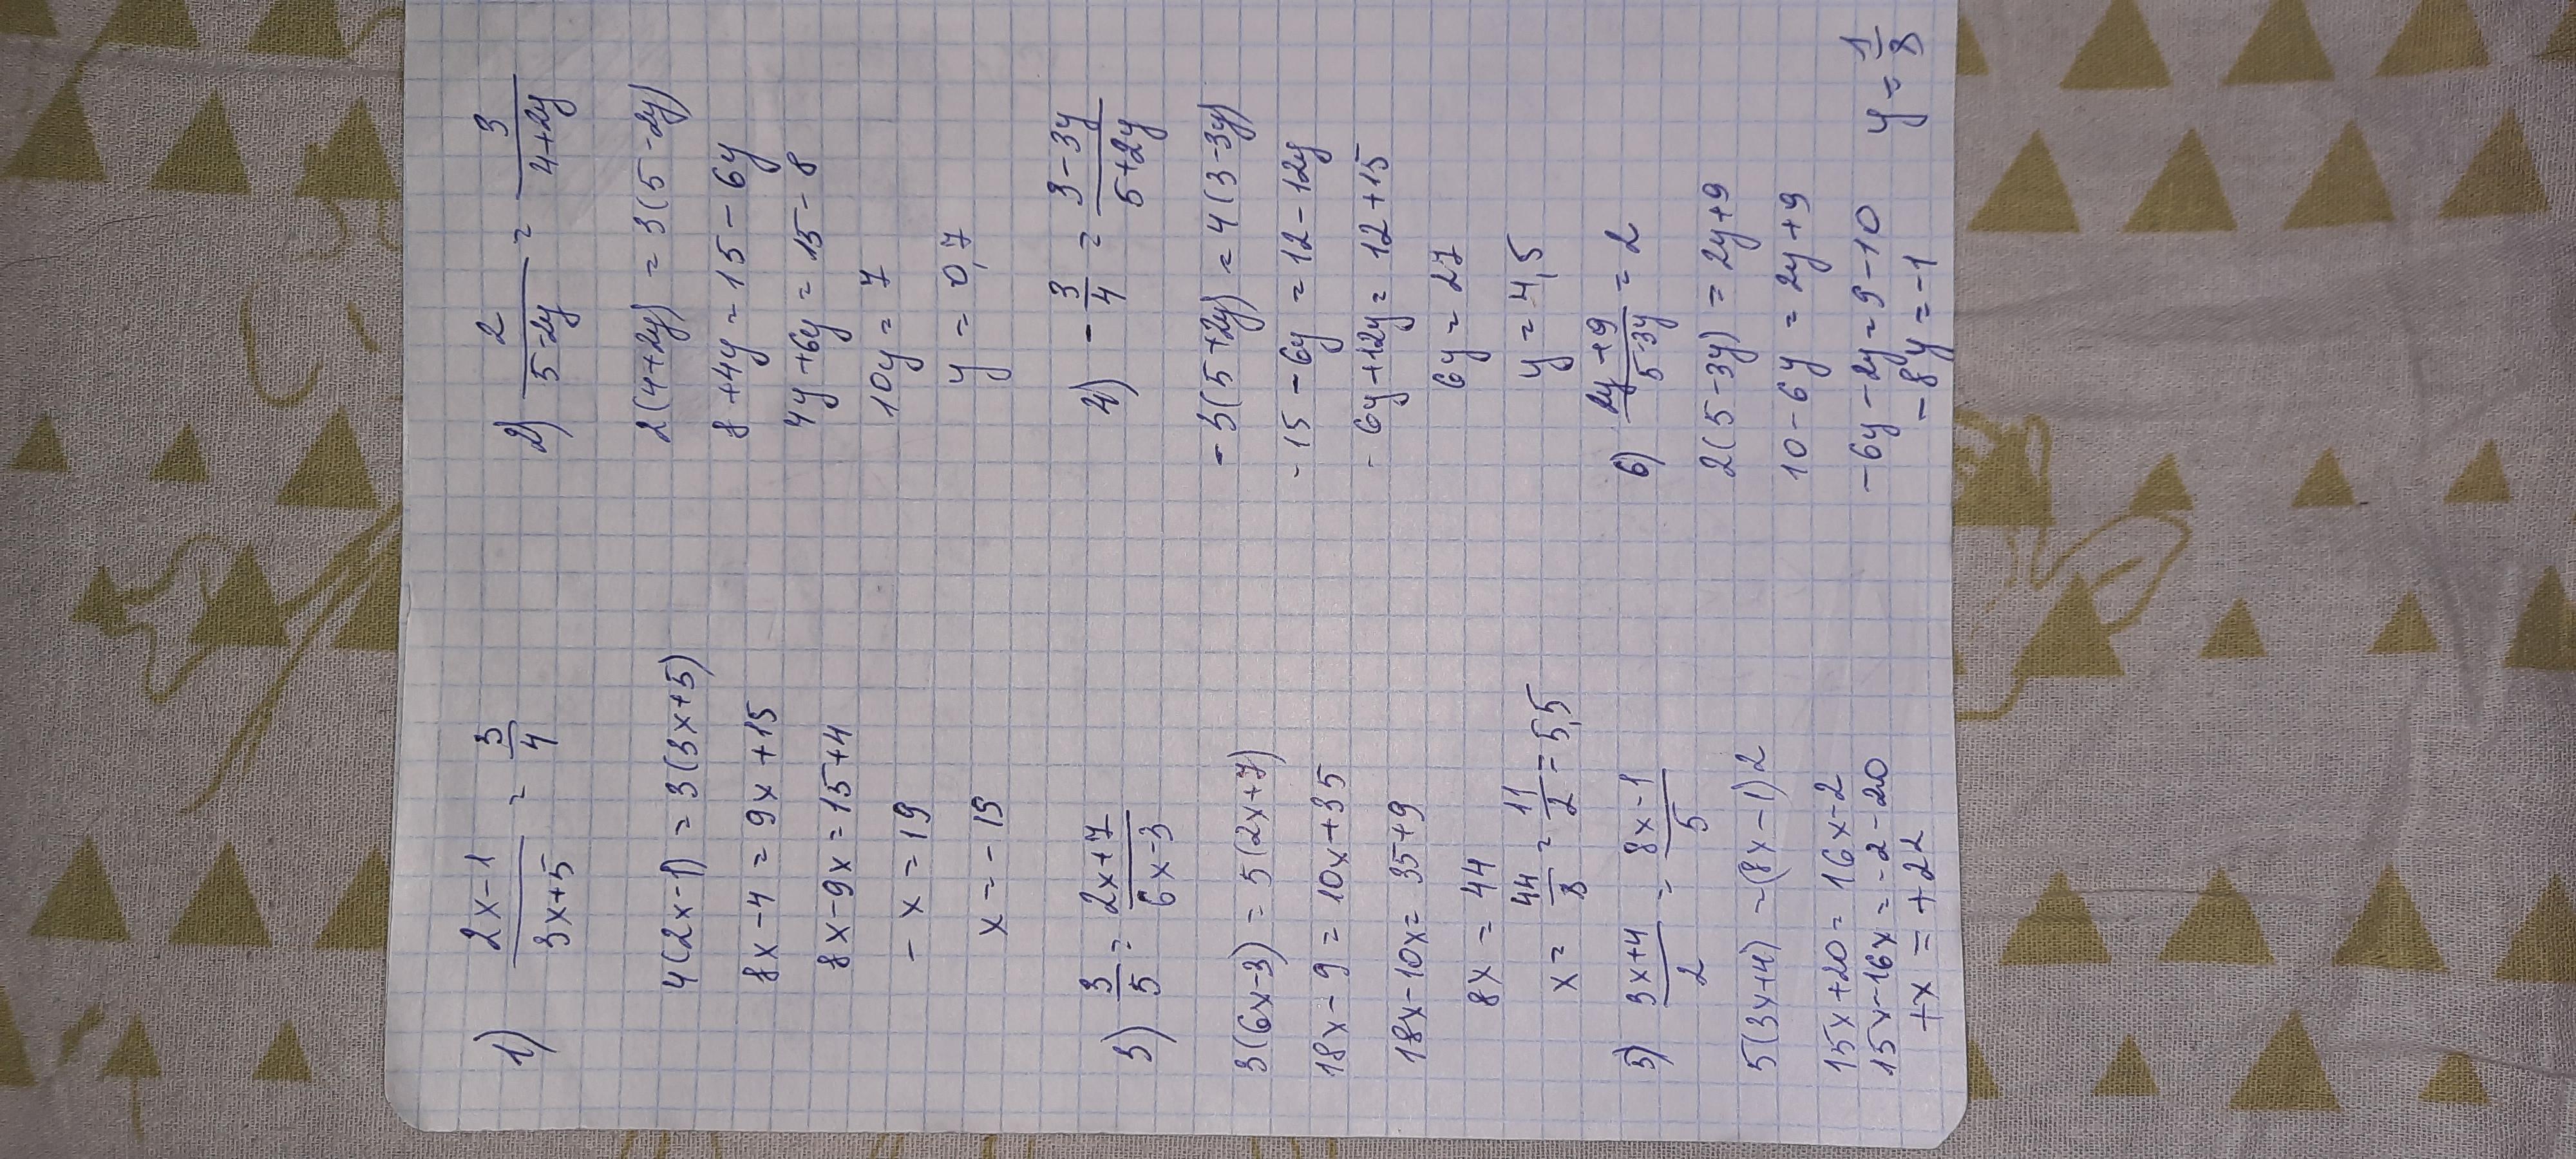 1) \frac{2x-1}{3x+5} = \frac{3}{4}
4(2x-1) = 3(3x+5)
8x-4 = 9x+15
8x-9x = 15+4
-x = 19
x = -19
2) \frac{2}{5-2y} = \frac{3}{4+2y}
2(4+2y) = 3(5-2y)
8+4y = 15-6y
4y+6y = 15-8
10y = 7
y = 0,7
3) \frac{3}{5} = \frac{2x+7}{6x-3}
3(6x-3) = 5(2x+7)
18x-9 = 10x+35
18x-10x = 35+9
8x = 44
x = \frac{44}{8} = \frac{11}{2} = 5,5
4) -\frac{3}{4} = \frac{3-3y}{5+2y}
-3(5+2y) = 4(3-3y)
-15-6y = 12-12y
-6y+12y = 12+15
6y = 27
y = 4,5
5) \frac{3x+4}{2} = \frac{8x-1}{5}
5(3x+4) = (8x-1)2
15x+20 = 16x-2
15x-16x = -2-20
+x = +22
6) \frac{2y+9}{5-3y} = 2
2(5-3y) = 2y+9
10-6y = 2y+9
-6y-2y = 9-10
-8y = -1
y = \frac{1}{8}